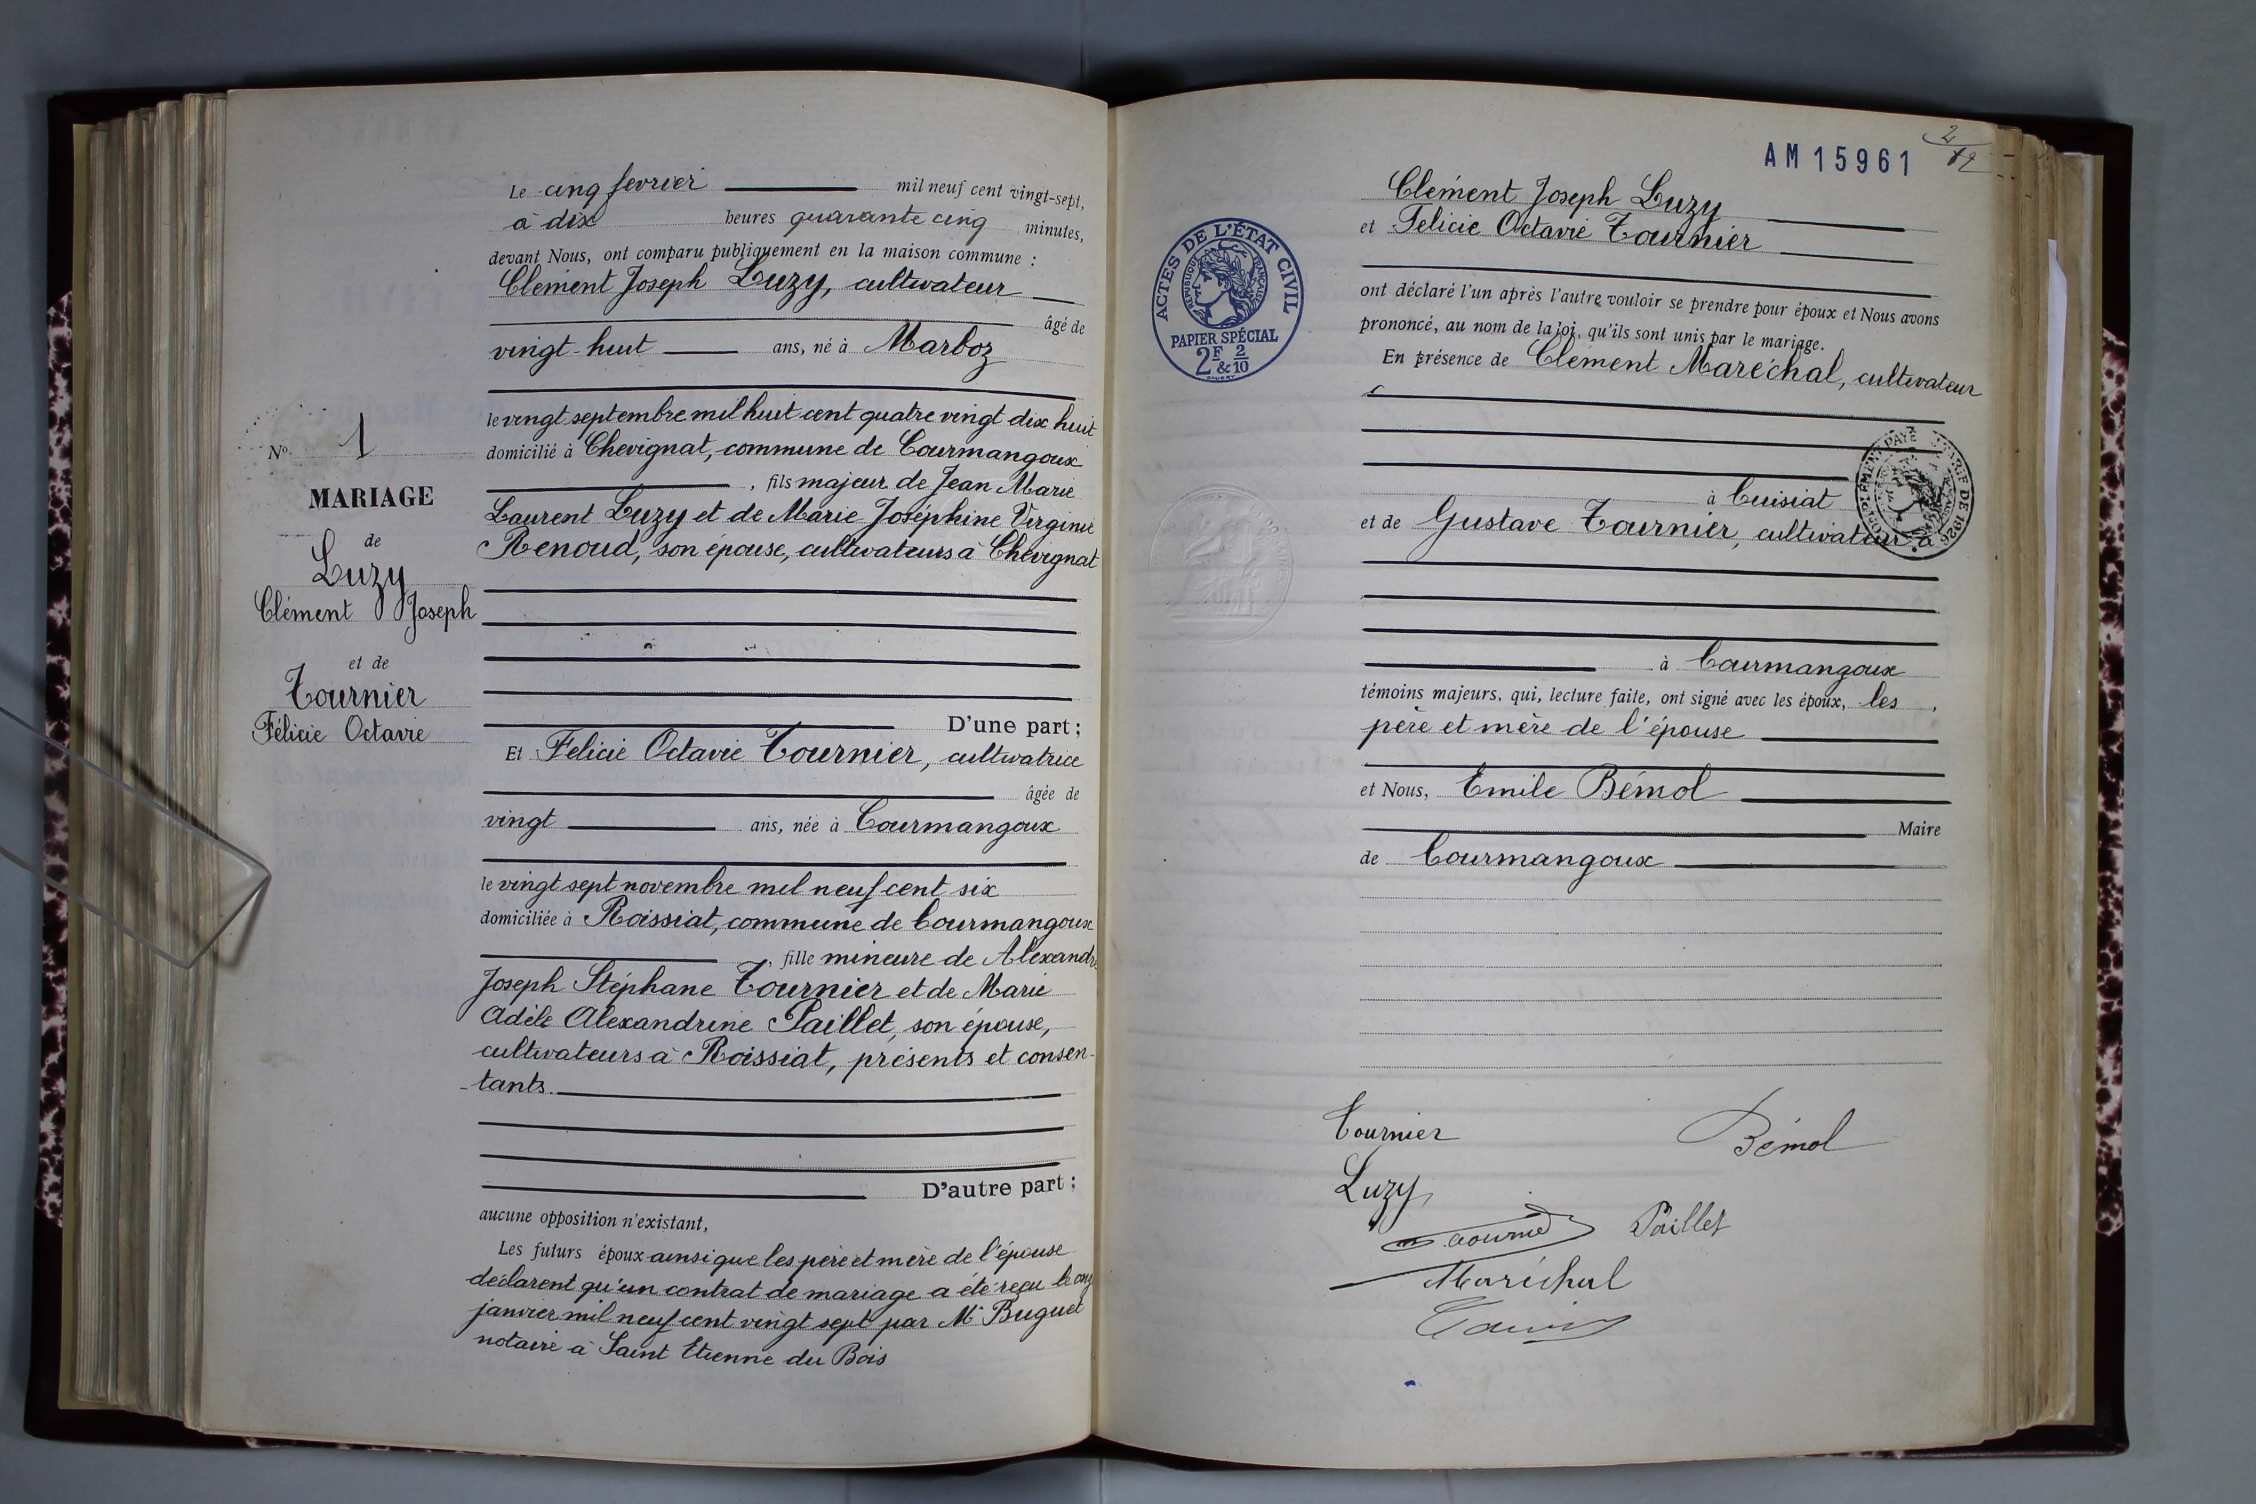 N° 1
MARIAGE
de
Luzy
Clément Joseph
et de
Tournier
Félicie Octavie
Le cinq fevrier mil neuf cent vingt-sept,
à dix heures quarante cinq minutes,
devant Nous, ont comparu publiquement en la maison commune :
Clément Joseph Luzy, cultivateur
âgé de
vingt-huit ans, né à Marboz
le vingt septembre mil huit cent quatre vingt dix huit
domicilié à Chevignat, commune de Courmangoux
, fils majeur de Jean Marie
Laurent Luzy et de Marie Joséphine Virginie
Renoud, son épouse, cultivateurs à Chevignat
D'une part ;
Et Felicie Octavie Tournier, cultivatrice
âgée de
vingt ans, née à Courmangoux
le vingt sept novembre mil neuf cent six
domiciliée à Roissiat, commune de Courmangoux
, fille mineure de Alexandre
Joseph Stéphane Tournier et de Marie
Adèle Alexandrine Paillet, son épouse,
cultivateurs à Roissiat, présents et consen-
-tants.
D'autre part ;
aucune opposition n'existant,
Les futurs époux ainsi que les père et mère de l'épouse
déclarent qu'un contrat de mariage a été reçu le
janvier mil neuf cent vingt sept par Me Buguet
notaire à Saint Etienne du Bois
AM 15961
2
12
ACTES DE L'ÉTAT CIVIL
RÉPUBLIQUE FRANÇAISE
PAPIER SPÉCIAL
2F & 2/10
Clément Joseph Luzy
et Felicie Octavie Tournier
ont déclaré l'un après l'autre vouloir se prendre pour époux et Nous avons
prononcé, au nom de la loi, qu'ils sont unis par le mariage.
En présence de Clément Maréchal, cultivateur
à Cuisiat
SUPPLÉMENT PAYÉ TARIF DE 1926
et de Gustave Tournier, cultivateur à
à Courmangoux
témoins majeurs, qui, lecture faite, ont signé avec les époux, les
père et mère de l'épouse
et Nous, Emile Bémol
Maire
de Courmangoux
Tournier Bémol
Luzy
Paillet
Maréchal